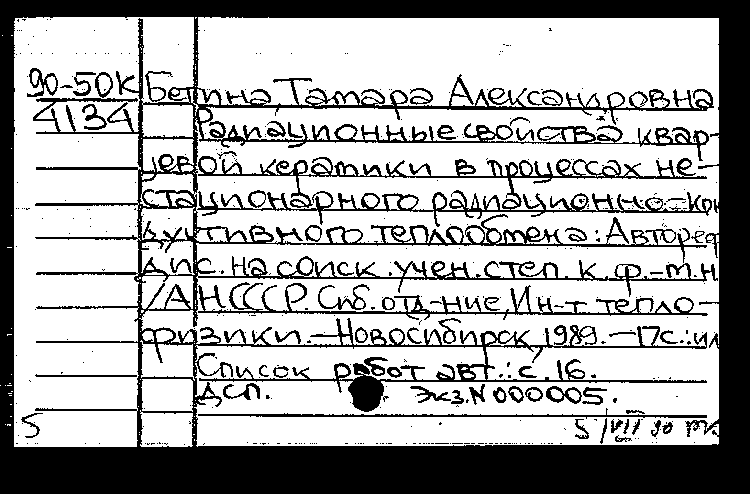 90-50К Бетина, Тамара Александровна
4134 Радиационные свойства квар-
цевой керамики в процессах не-
стационарного радиационно-кон
дуктивного теплообмена: Автореф
дис. на соиск. учен. степ. к. ф.-т.н
/АН СССР. Сиб. отд-ние, Ин-т тепло-
физики. - Новосибирск, 1989. - 17с.: ил
Список работ авт.: с. 16.
ДСП. Экз. N 000005.
5 5/VII 90